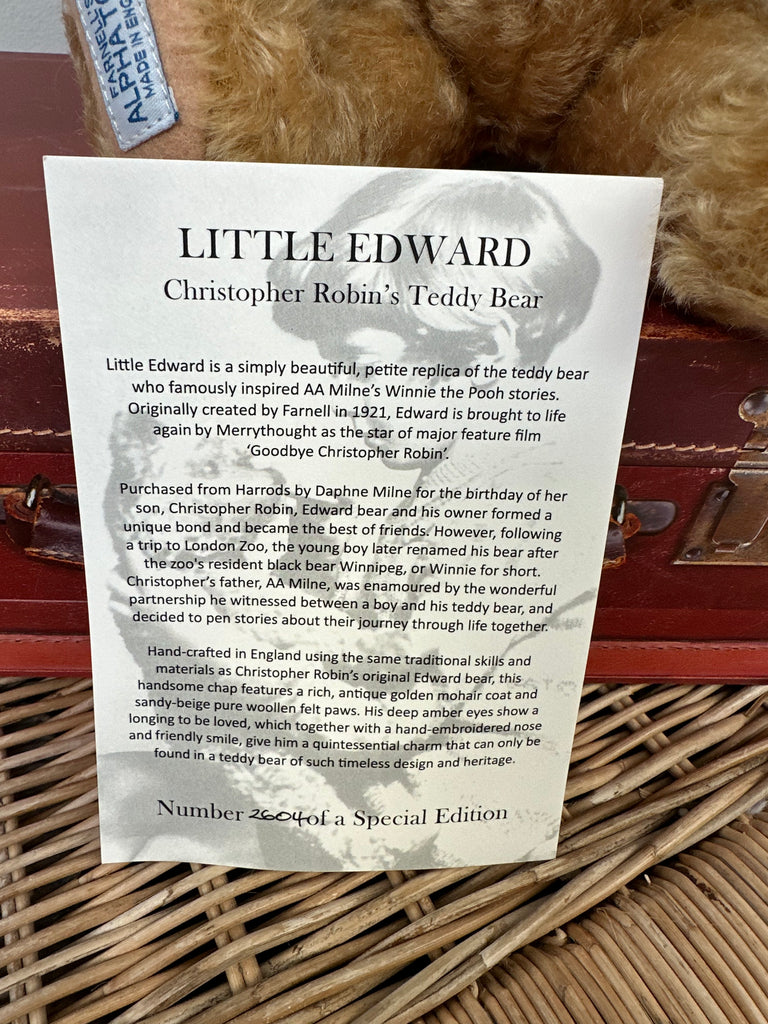 FARNELL'S
ALPHA TO
MADE IN ENG
LITTLE EDWARD
Christopher Robin's Teddy Bear
Little Edward is a simply beautiful, petite replica of the teddy bear
who famously inspired AA Milne's Winnie the Pooh stories.
Originally created by Farnell in 1921, Edward is brought to life
again by Merrythought as the star of major feature film
'Goodbye Christopher Robin'.
Purchased from Harrods by Daphne Milne for the birthday of her
son, Christopher Robin, Edward bear and his owner formed a
unique bond and became the best of friends. However, following
a trip to London Zoo, the young boy later renamed his bear after
the zoo's resident black bear Winnipeg, or Winnie for short.
Christopher's father, AA Milne, was enamoured by the wonderful
partnership he witnessed between a boy and his teddy bear, and
decided to pen stories about their journey through life together.
Hand-crafted in England using the same traditional skills and
materials as Christopher Robin's original Edward bear, this
handsome chap features a rich, antique golden mohair coat and
sandy-beige pure woollen felt paws. His deep amber eyes show a
longing to be loved, which together with a hand-embroidered nose
and friendly smile, give him a quintessential charm that can only be
found in a teddy bear of such timeless design and heritage.
Number 2604 of a Special Edition